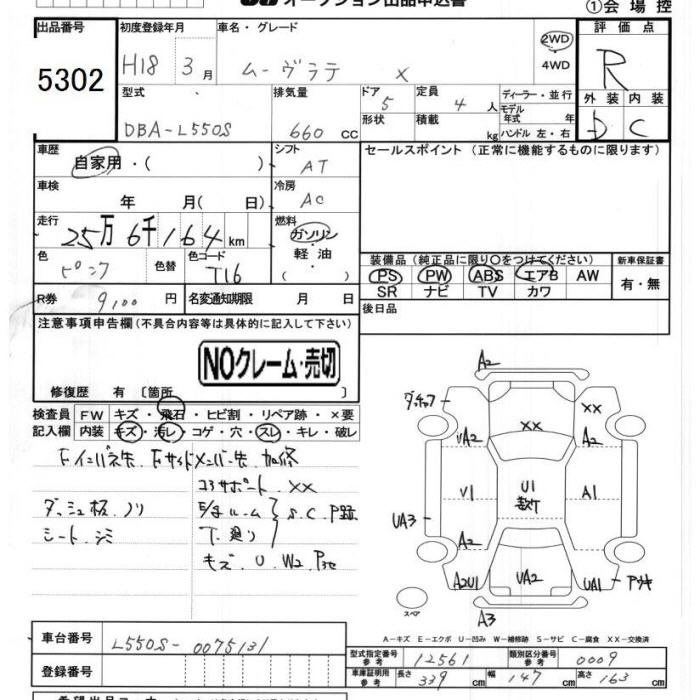 オークション出品申込書
①会場控
出品番号
5302
初度登録年月
H18 3月
車名・グレード
ムーヴラテ X
2WD
・
4WD
評価点
R
外装 内装
D C
型式
DBA-L550S
排気量
660 cc
ドア
5
定員
4 人
形状
積載
kg
ディーラー・並行
モデル
年式 年
ハンドル 左・右
車歴
自家用・( )
シフト
AT
セールスポイント (正常に機能するものに限ります)
車検
年 月( 日)
冷房
AC
走行
25万6千164 km
燃料
ガソリン
軽油
( )
色
ピンク
色替
色コード
T16
装備品(純正品に限り○をつけてください)
PS PW ABS エアB AW
SR ナビ TV カワ
新車保証書
有・無
R券
9,100 円
名変通知期限 月 日
後日品
注意事項申告欄(不具合内容等は具体的に記入して下さい)
NOクレーム・売切
修復歴 有〔箇所 〕
検査員
記入欄
FW キズ・飛石・ヒビ割・リペア跡・×要
内装 キズ・汚レ・コゲ・穴・スレ・キレ・破レ
Fインパネ先、Fサイドメンバー先 加修
コアサポート・XX
ダッシュ板、ノリ
シート、シミ
ルーム
下廻り
S、C、P跡
キズ、U、W2、P
A2
XX
XX
UA2
A2
V1
U1
A1
UA3
A2
A2U1
UA2
UA1
A3
スペア
A-キズ E-エクボ U-凹み W-補修跡 S-サビ C-腐食 XX-交換済
車台番号
L550S-0075131
登録番号
型式指定番号
参考
12561
類別区分番号
参考
0009
車庫証明用
参考
長さ
339 cm
幅
147 cm
高さ
163 cm